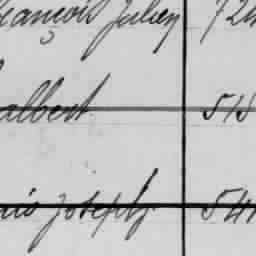 rançois Julien 724
albert 515
nio Joseph 541